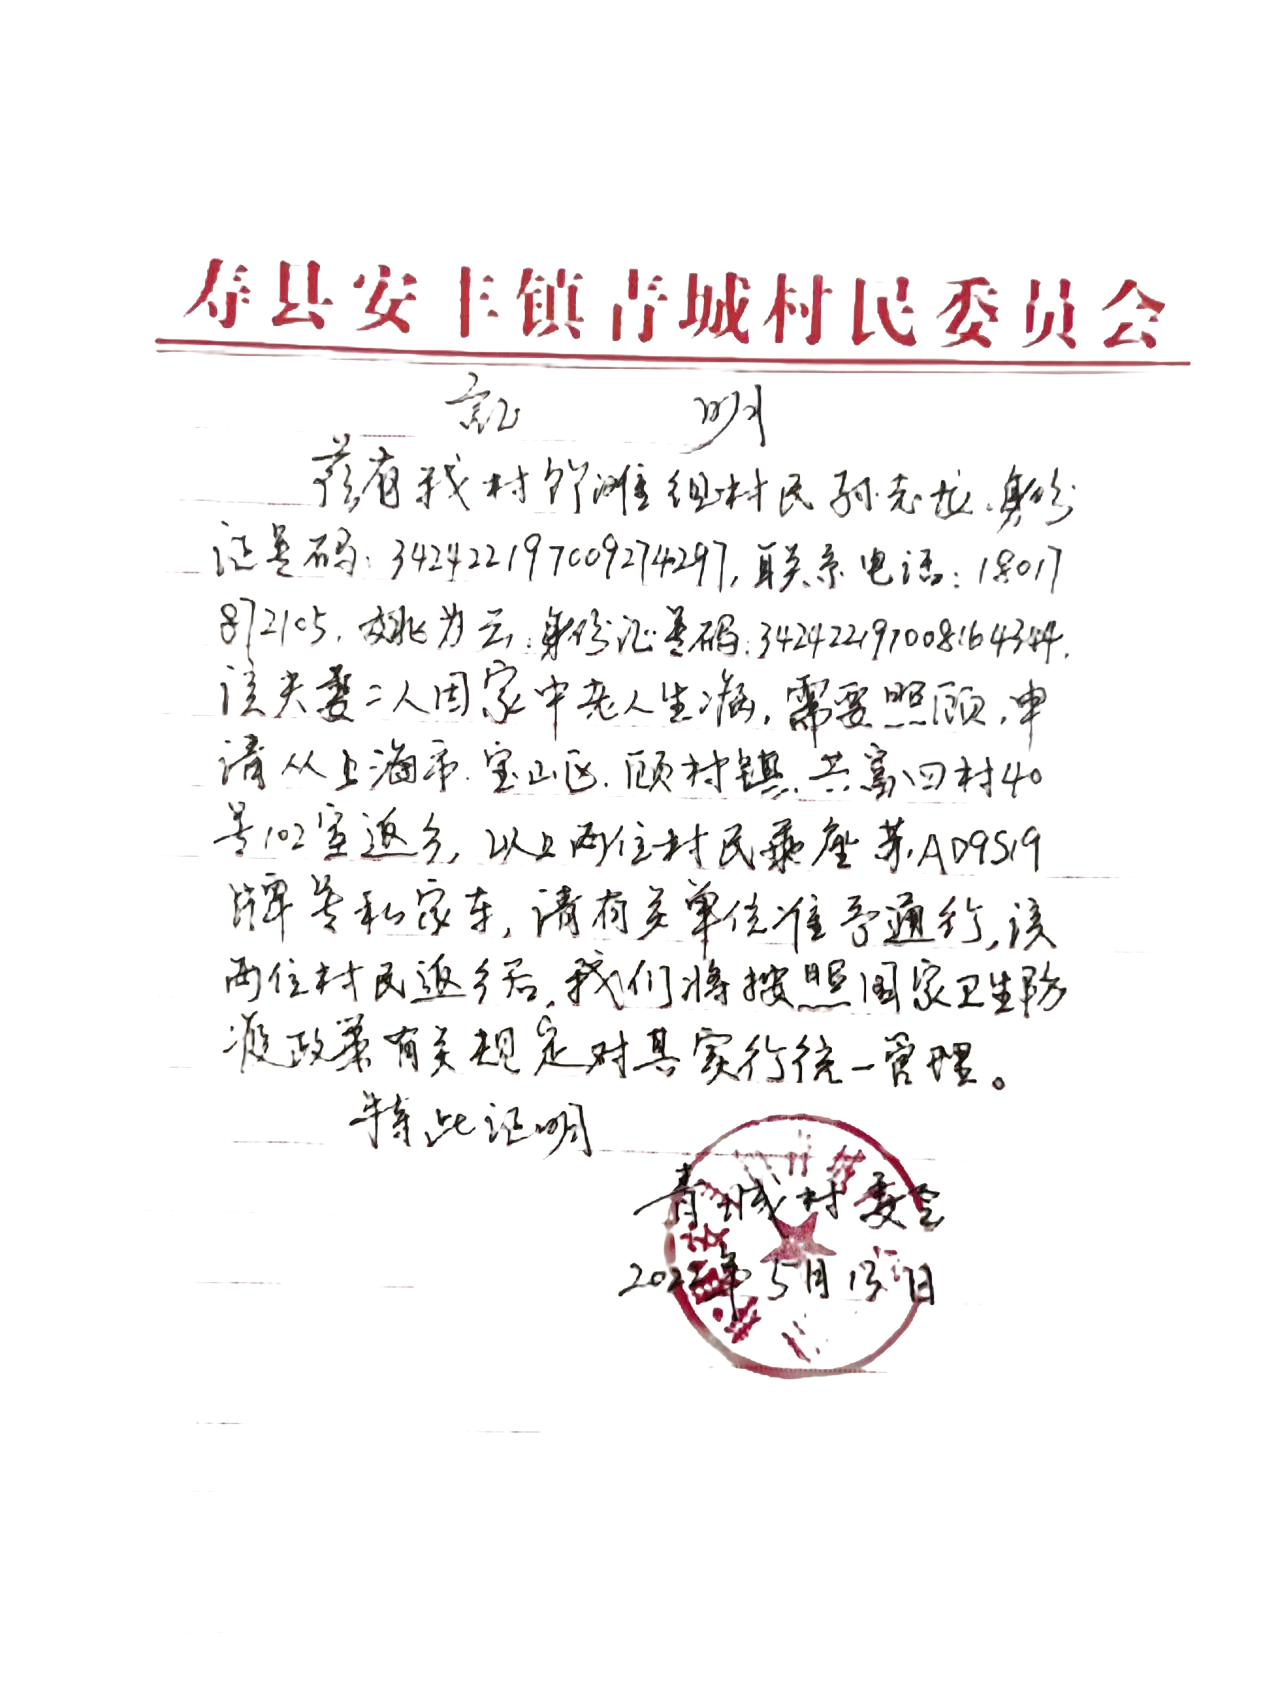 寿县安丰镇青城村民委员会
证 明
兹有我村 组村民孙志龙，身份
证号码：342422197009274297，联系电话：18017
872105，姚为云，身份证号码：342422197008164344，
该夫妻二人因家中老人生病，需要照顾，申
请从上海市．宝山区．顾村镇．共富四村40
号102室返乡，以上两位村民乘座苏AD9519
牌号私家车，请有关单位准予通行，该
两位村民返乡后，我们将按照国家卫生防
疫政策有关规定对其实行统一管理。
特此证明
青城村委会
2022年5月13日